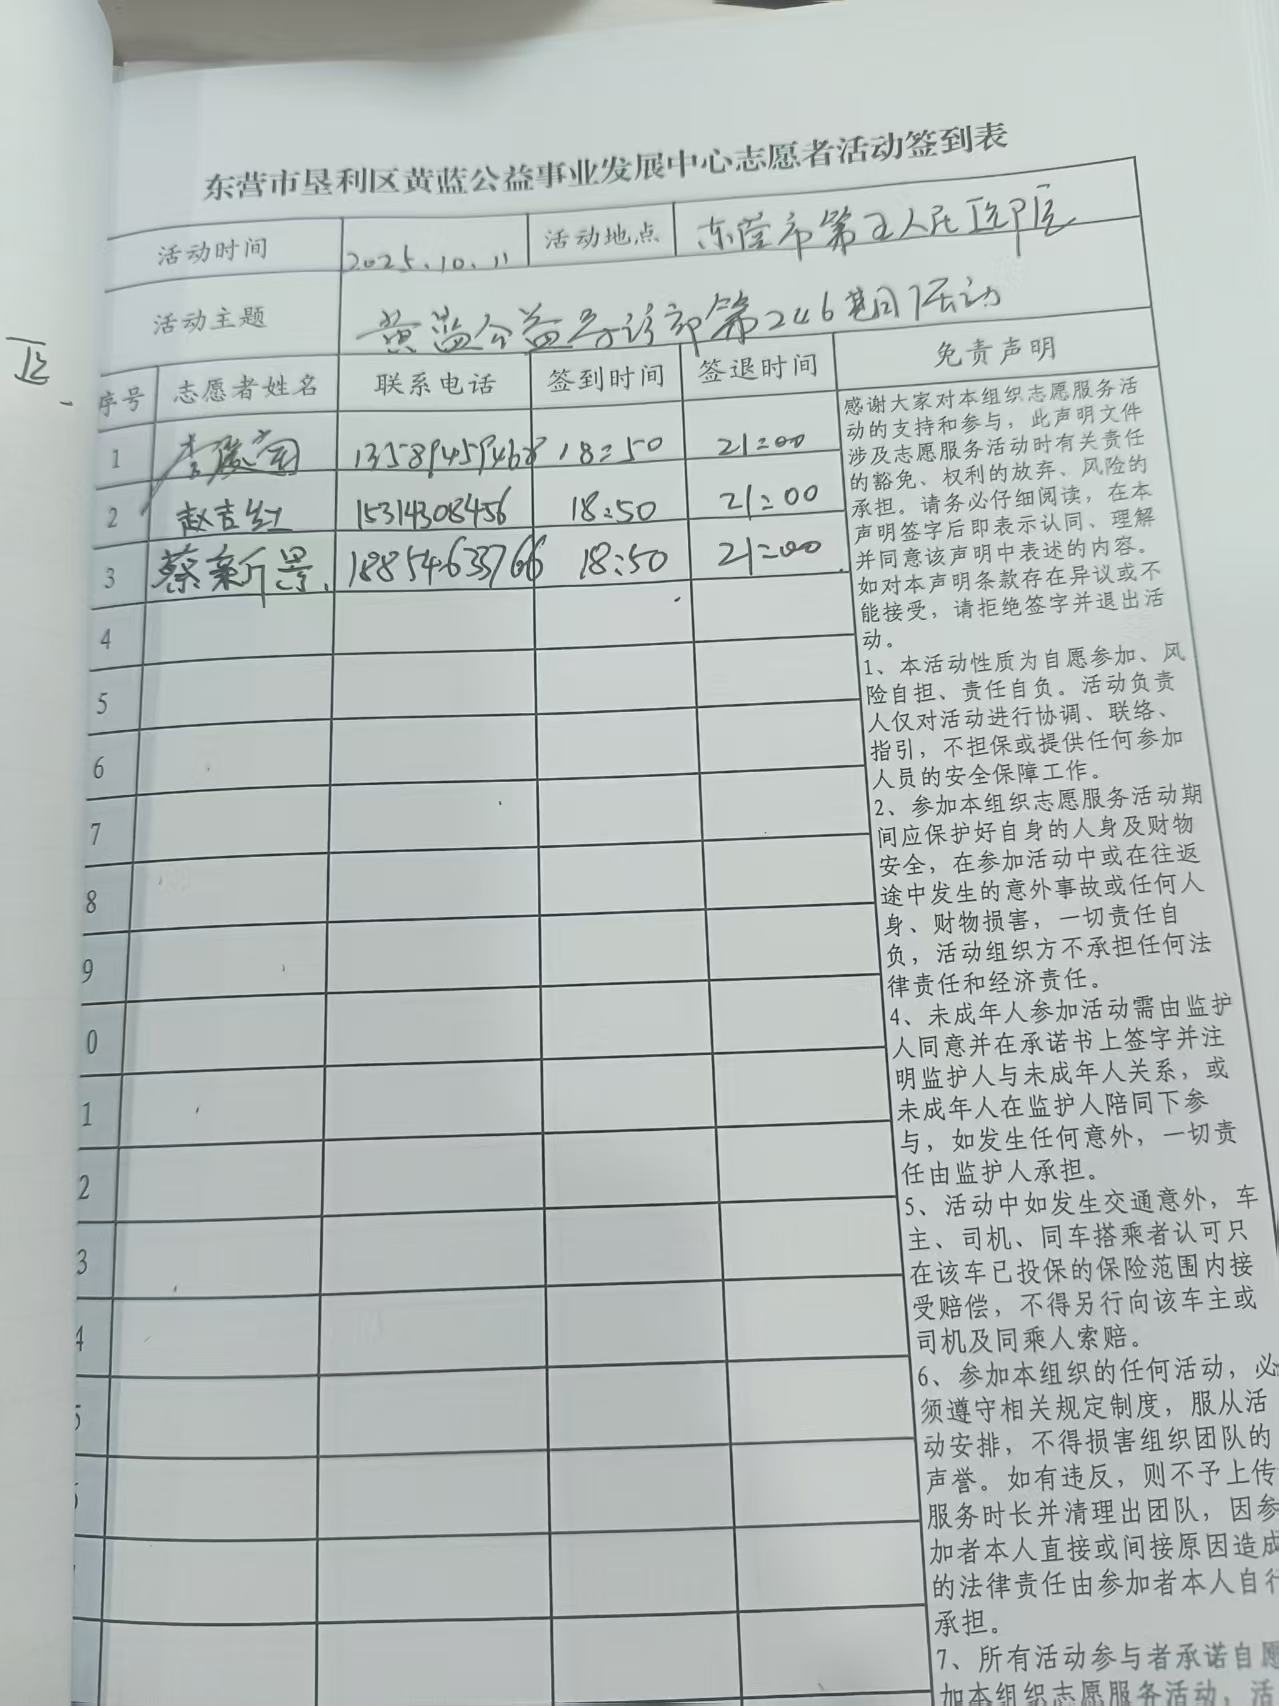 东营市垦利区黄蓝公益事业发展中心志愿者活动签到表
活动时间 2025.10.11 活动地点 东营市第五人民医院
活动主题 黄蓝公益导诊部第246期活动
序号 志愿者姓名 联系电话 签到时间 签退时间 免责声明
1 13589459468 18:50 21:00
2 赵吉红 15314308456 18:50 21:00
3 蔡新景 18854633766 18:50 21:00
4
5
6
7
8
9
0
1
2
3
4
5
6
感谢大家对本组织志愿服务活
动的支持和参与，此声明文件
涉及志愿服务活动时有关责任
的豁免、权利的放弃、风险的
承担。请务必仔细阅读，在本
声明签字后即表示认同、理解
并同意该声明中表述的内容。
如对本声明条款存在异议或不
能接受，请拒绝签字并退出活
动。
1、本活动性质为自愿参加、风
险自担、责任自负。活动负责
人仅对活动进行协调、联络、
指引，不担保或提供任何参加
人员的安全保障工作。
2、参加本组织志愿服务活动期
间应保护好自身的人身及财物
安全，在参加活动中或在往返
途中发生的意外事故或任何人
身、财物损害，一切责任自
负，活动组织方不承担任何法
律责任和经济责任。
4、未成年人参加活动需由监护
人同意并在承诺书上签字并注
明监护人与未成年人关系，或
未成年人在监护人陪同下参
与，如发生任何意外，一切责
任由监护人承担。
5、活动中如发生交通意外，车
主、司机、同车搭乘者认可只
在该车已投保的保险范围内接
受赔偿，不得另行向该车主或
司机及同乘人索赔。
6、参加本组织的任何活动，必
须遵守相关规定制度，服从活
动安排，不得损害组织团队的
声誉。如有违反，则不予上传
服务时长并清理出团队，因参
加者本人直接或间接原因造成
的法律责任由参加者本人自行
承担。
7、所有活动参与者承诺自愿
加本组织志愿服务活动，活